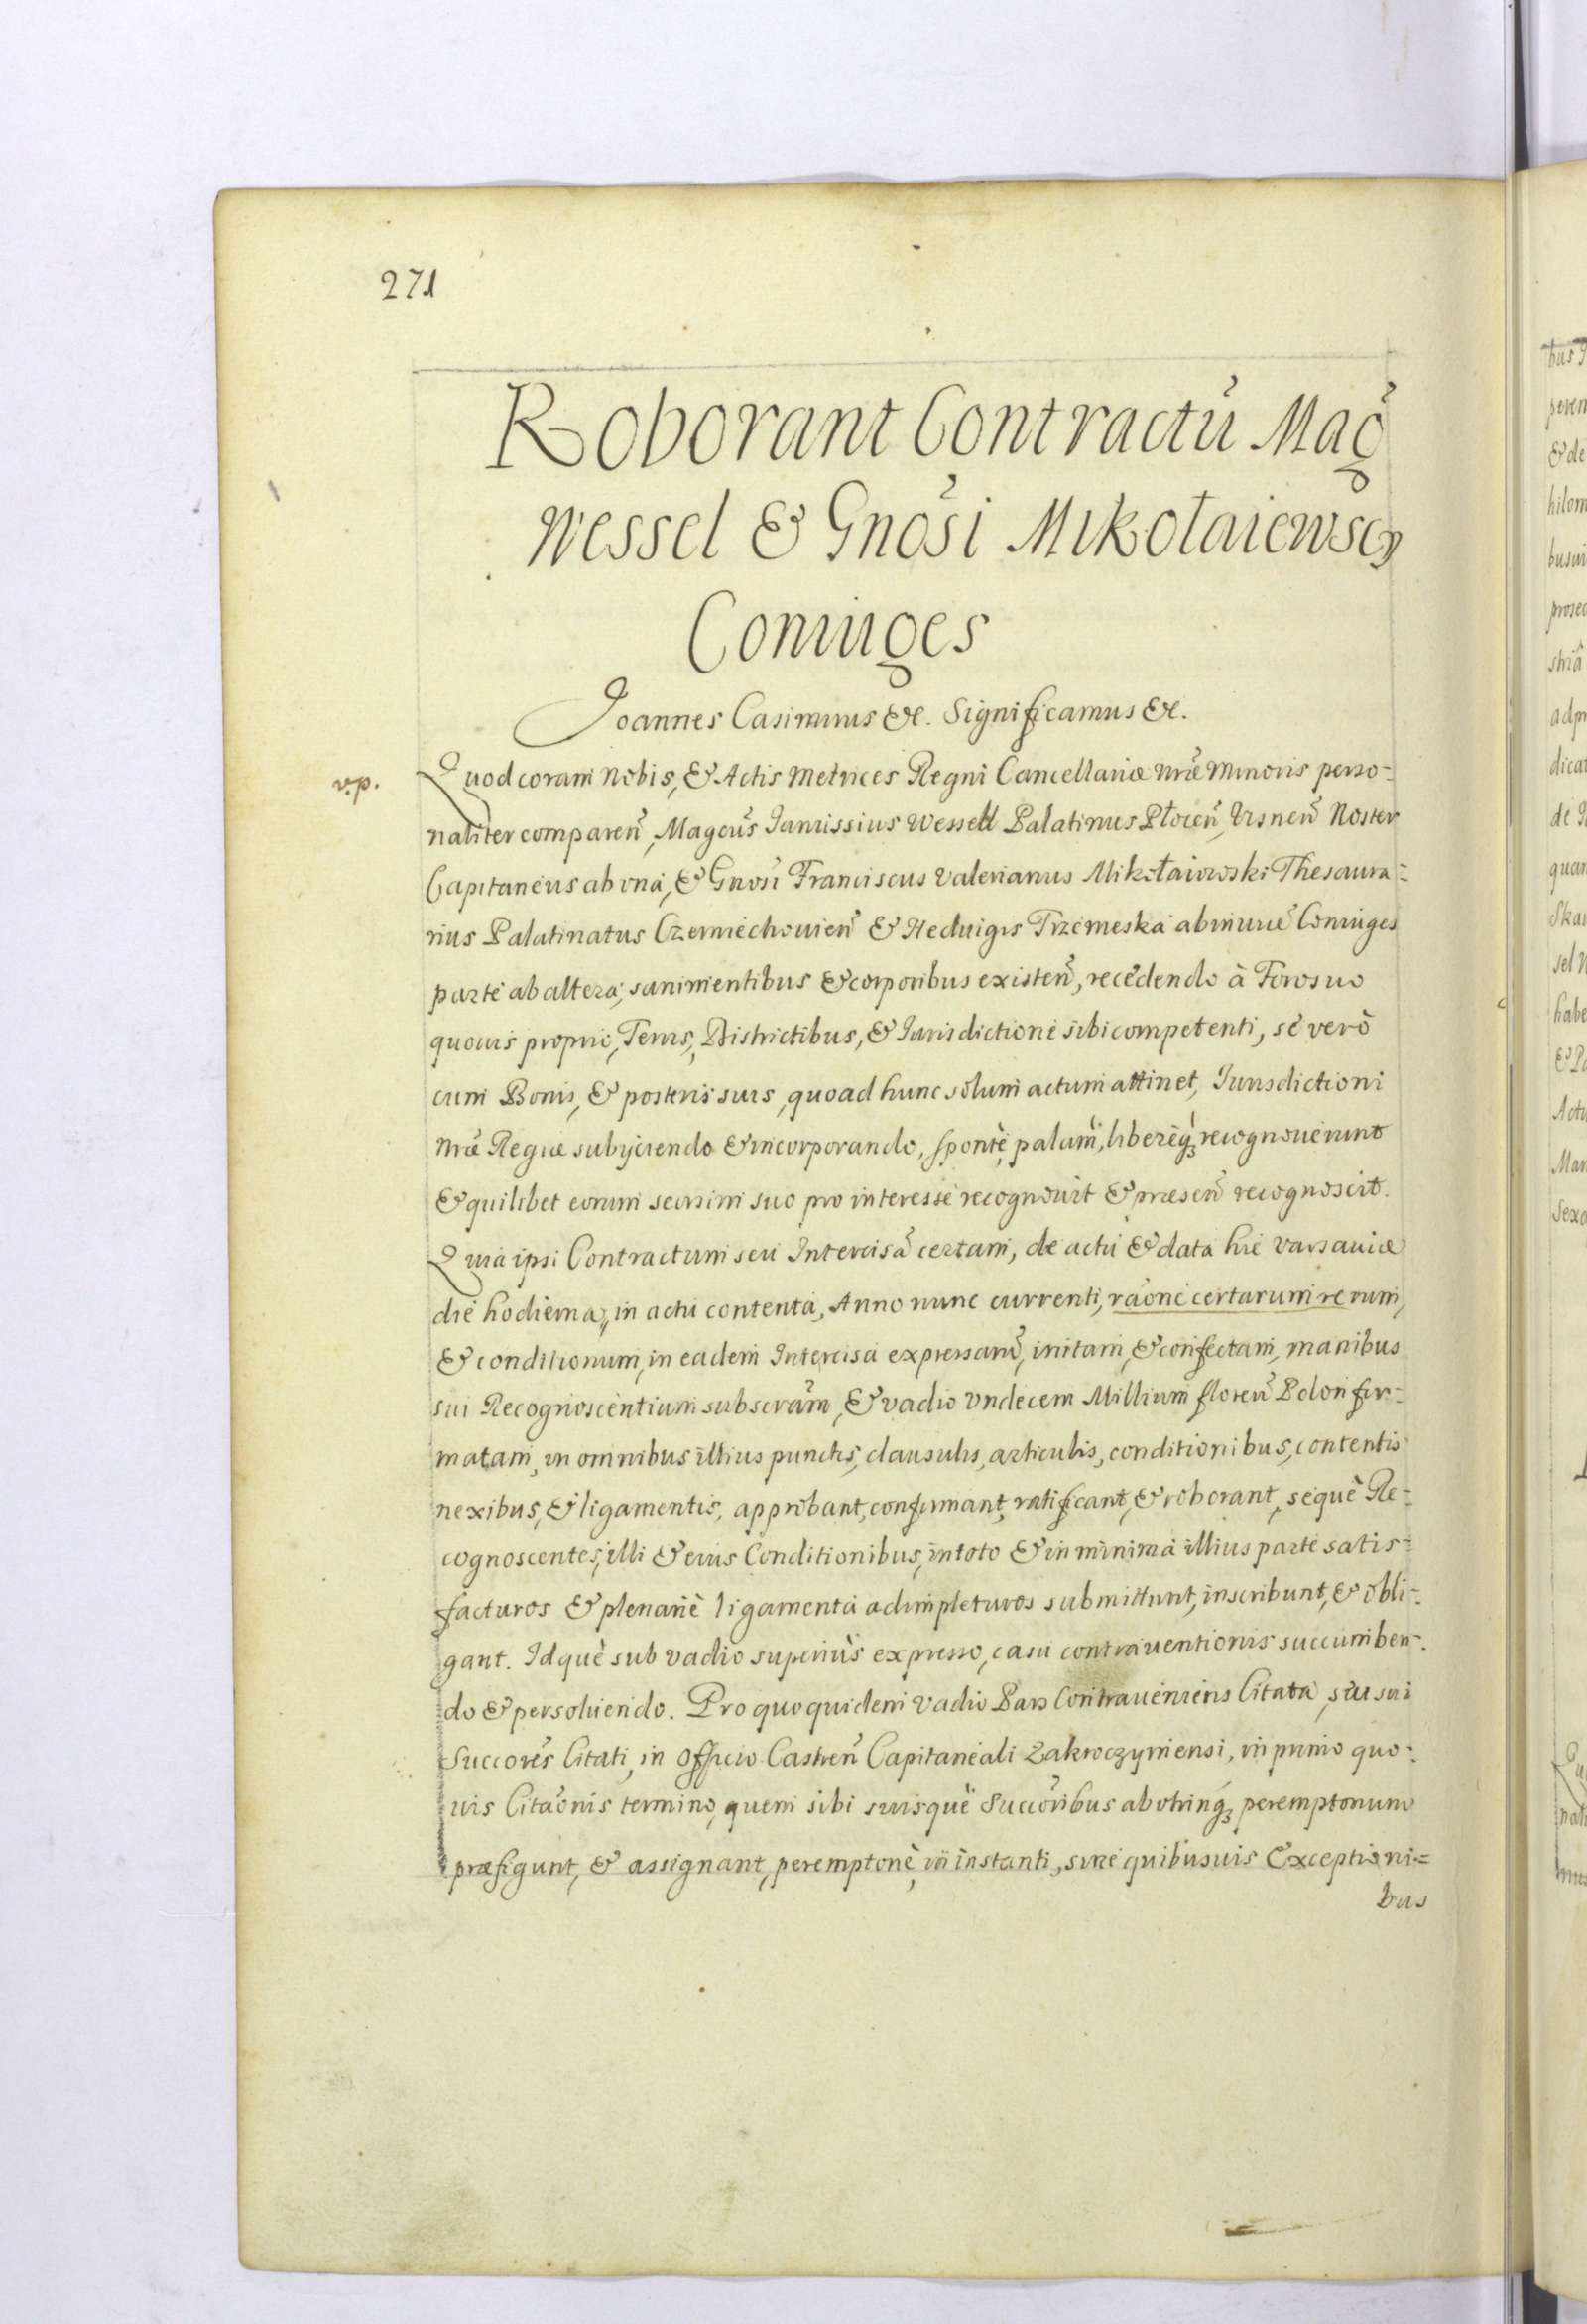 271
Roborant Contractũ Mag̃
Wessel & Gnõsi Mikołaiewscy
Coniuges
Joannes Casimirus &c. Significamus &c.
v.p.
Quod coram Nobis, & Actis Metrices Regni Cancellariæ nr̃æ Minoris perso-
naliter comparen̄, Magcũs Janussius Wessell Palatinus Płocen̄, Noster
Capitaneus ab vna, & Gnosi Franciscus Valerianus Mikołaiowski Thesaura-
rius Palatinatus Czerniechouien̄ & Heduigis Trzemeska ab inuice Coniuges
parte ab altera, sani mentibus & corporibus existen̄, recedendo à Foro suo
quouis proprio, Terris, Districtibus, & Jurisdictione sibi competenti, se verò
cum Bonis, & posteris suis, quoad hunc solum actum attinet, Jurisdictioni
nr̃æ Regiæ subijciendo & incorporando, spontè, palàm, liberèq́ꝫ recognouerunt
& quilibet eorum seorsim suo pro interesse recognouit & præsen̄ recognoscit.
Quia ipsi Contractum seu Intercisã certam, de actu & data hic Varsauiæ
die hodierna, in actu contenta, Anno nunc currenti, raõne certarum rerum,
& conditionum, in eadem Intercisa expressarũ, initam, & confectam, manibus
sui Recognoscentium subscrãm, & vadio vndecem Millium floren̄ Polon fir-
matam, in omnibus illius punctis, clausulis, articulis, conditionibus, contentis
nexibus, & ligamentis, approbant, confirmant, ratificant, & roborant, sequè Re-
cognoscentes, illi & eius Conditionibus, in toto & in minima illius parte satis-
facturos & plenariè ligamenta adimpleturos submittunt, inscribunt, & obli-
gant. Idquè sub vadio superiùs expresso, casu contrauentionis succumben-
do & persoluendo. Pro quo quidem vadio Pars Contraueniens Citata, siu sui
Succorẽs Citati, in Officio Castren̄ Capitaneali Zakroczymensi, in primo quo-
uis Citaõnis termino, quem sibi suisquè Succoribus ab vtrinq́ꝫ peremptorium
præfigunt, & assignant, peremptoriè, in instanti, sine quibusuis Exceptioni-
bus